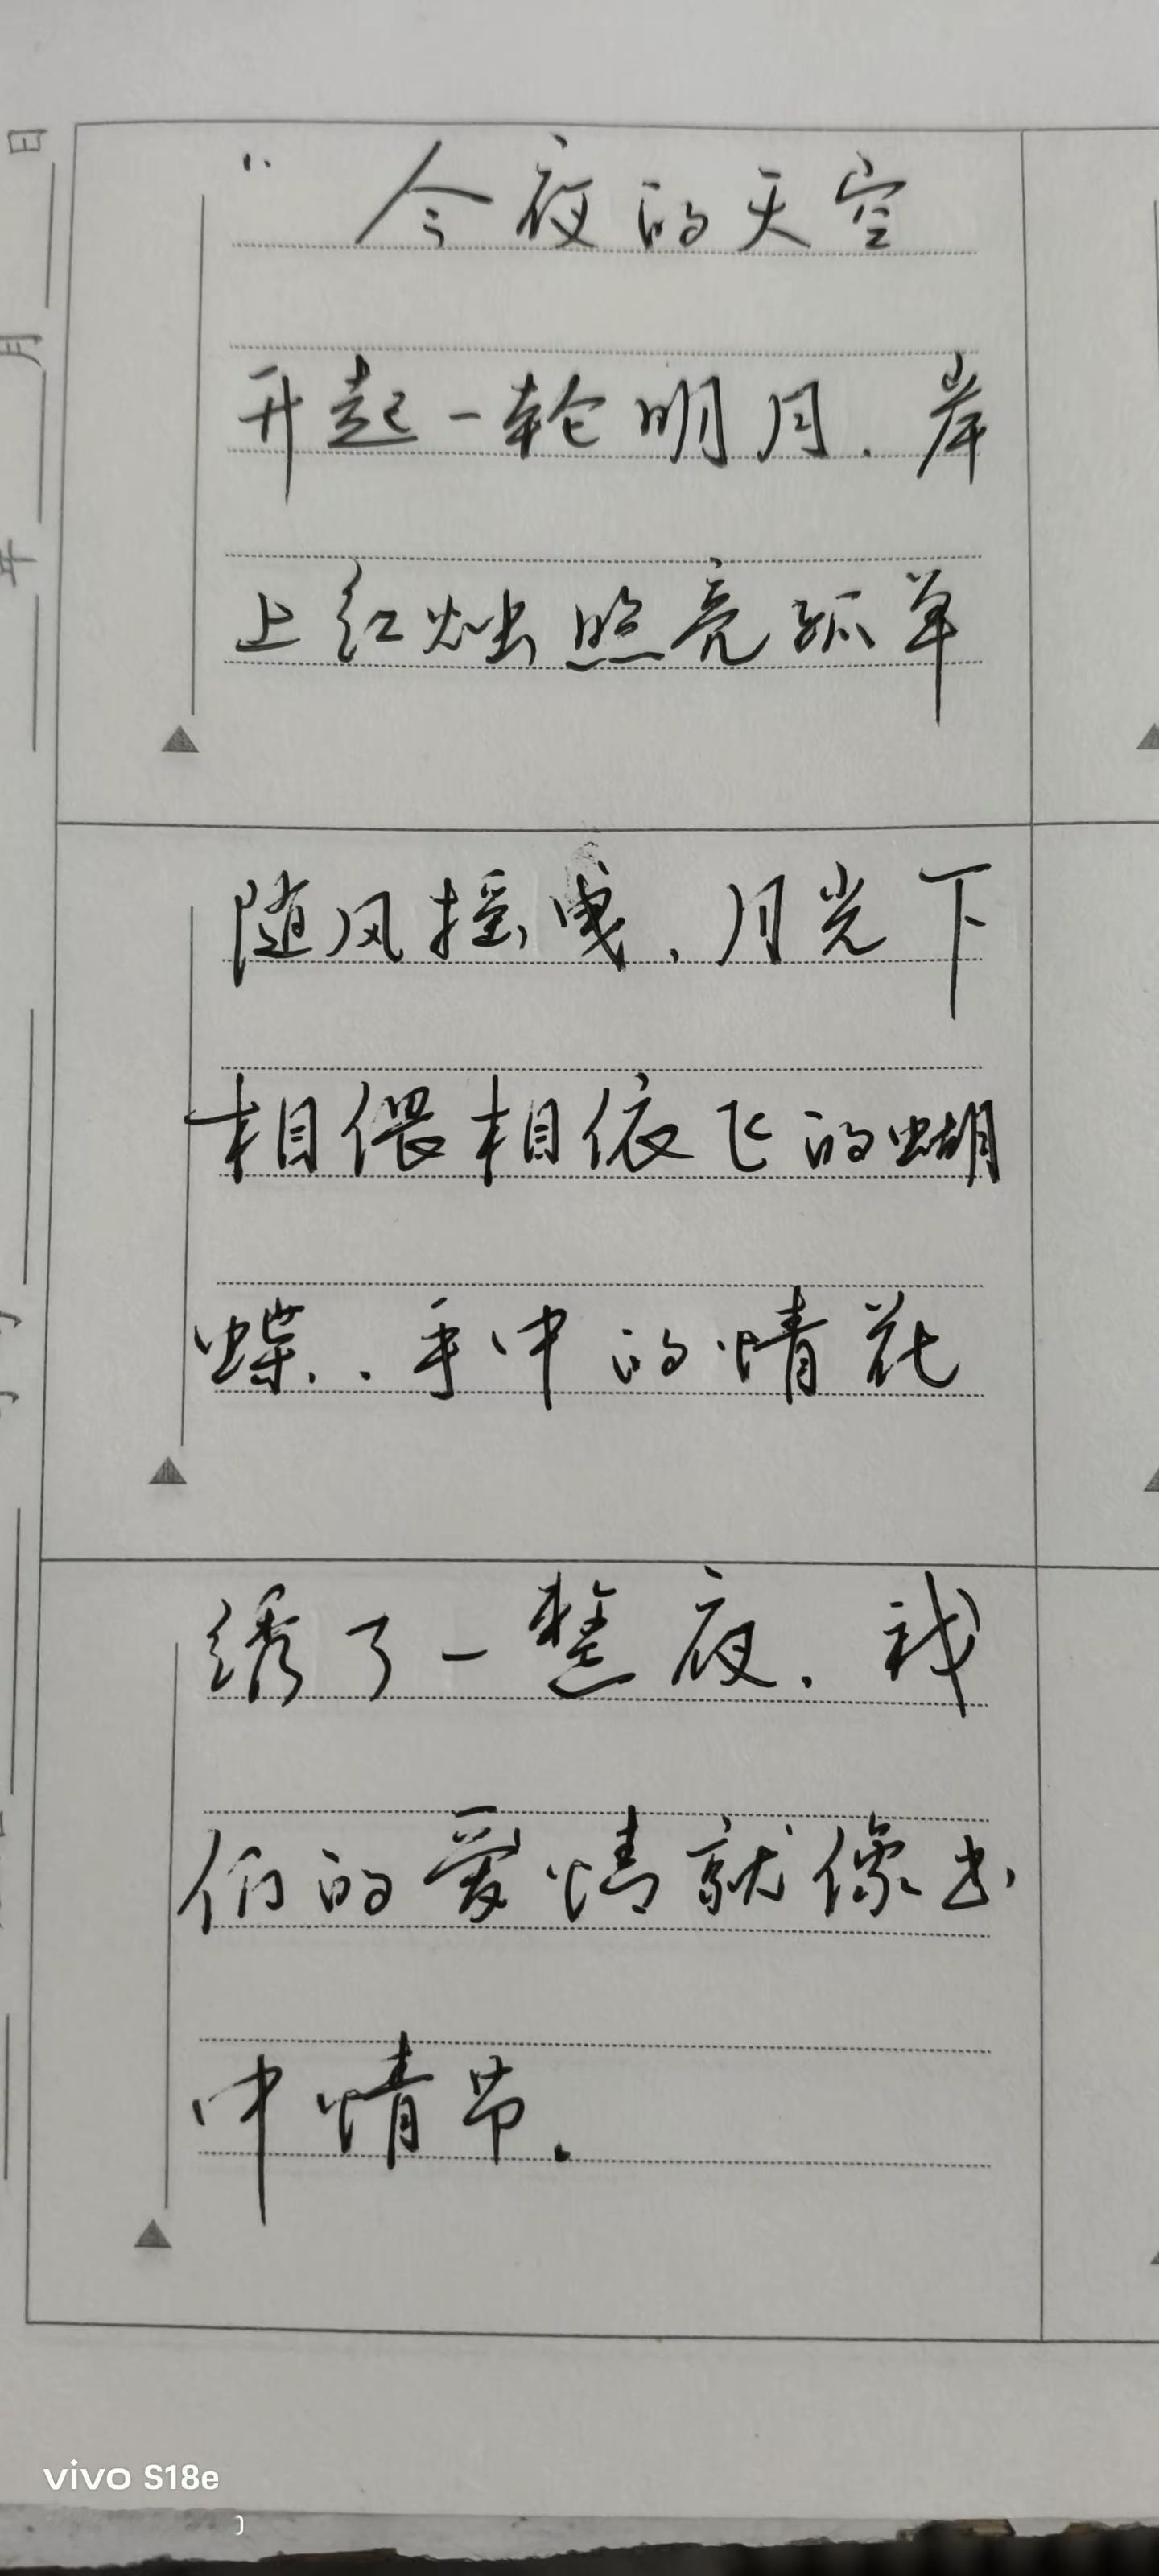 “ 今夜的天空
升起一轮明月.岸
上红烛照亮孤单
随风摇曳.月光下
相偎相依飞的蝴
蝶..手中的情花
绣了一整夜.我
们的爱情就像书
中情节.
日
月
年
vivo S18e